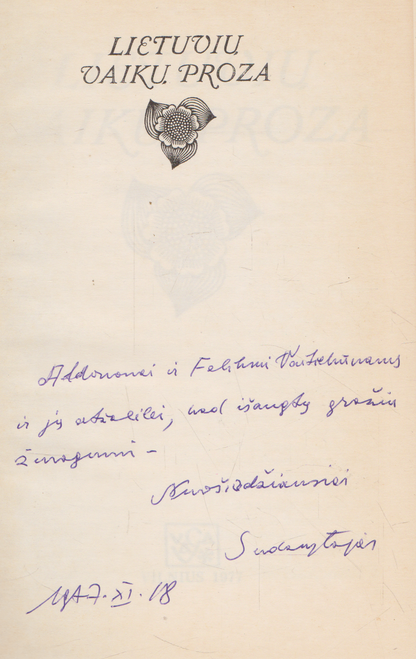 LIETUVIŲ
VAIKŲ PROZA
Aldonai ir Feliksui Vaitiekūnams
ir jų atžalėlei, kad išaugtų gražiu
žmogumi –
Nuoširdžiausiai
Sudarytojas
XI. 18